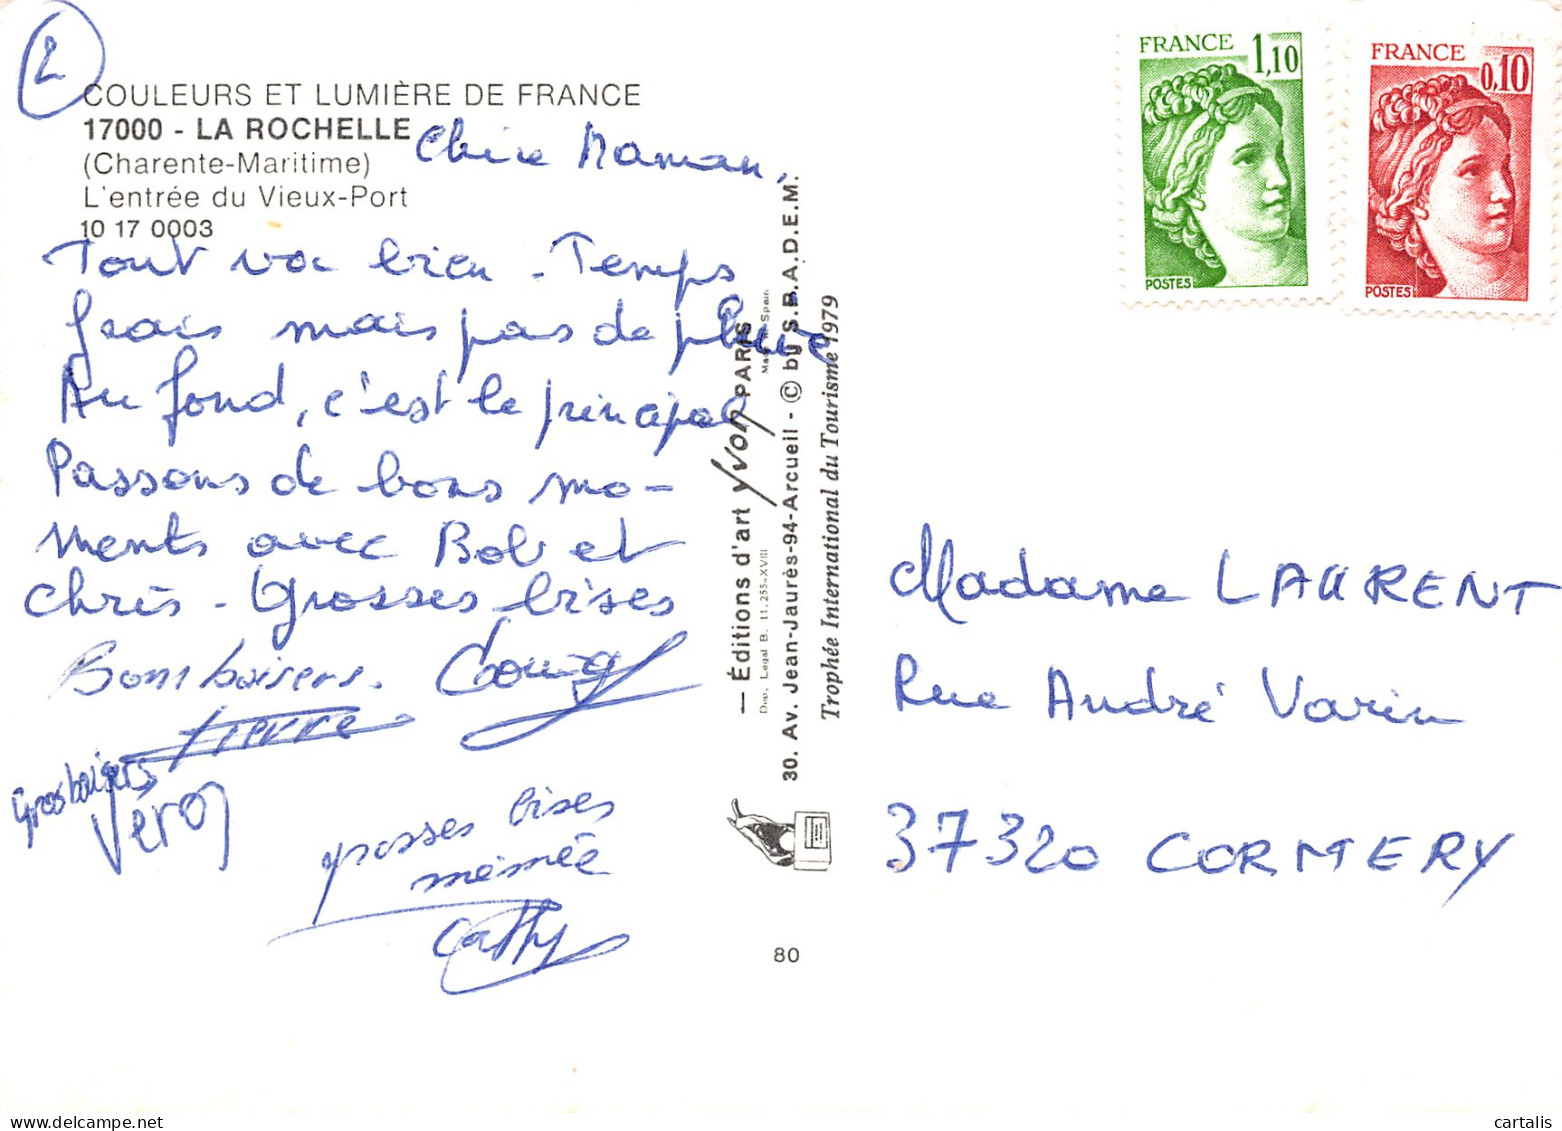 2
COULEURS ET LUMIÈRE DE FRANCE
17000 - LA ROCHELLE
(Charente-Maritime)
L'entrée du Vieux-Port
10 17 0003
Chère Maman,
Tout va bien - Temps
frais mais pas de pluie
Au fond, c'est le principal
Passons de bons mo-
ments avec Bob et
Chris - Grosses bises
Bons baisers.
Pierre
Gros baisers
Véro
grosses bises
mémée
Cathy
— Éditions d'art YVON PARIS
Dep. Legal B. 11.255-XVIII
30. Av. Jean-Jaurès-94-Arcueil - © by S.P.A.D.E.M.
Trophée International du Tourisme 1979
80
FRANCE 1,10
POSTES
FRANCE 0,10
POSTES
Madame LAURENT
Rue André Varin
37320 CORMERY
cartalis